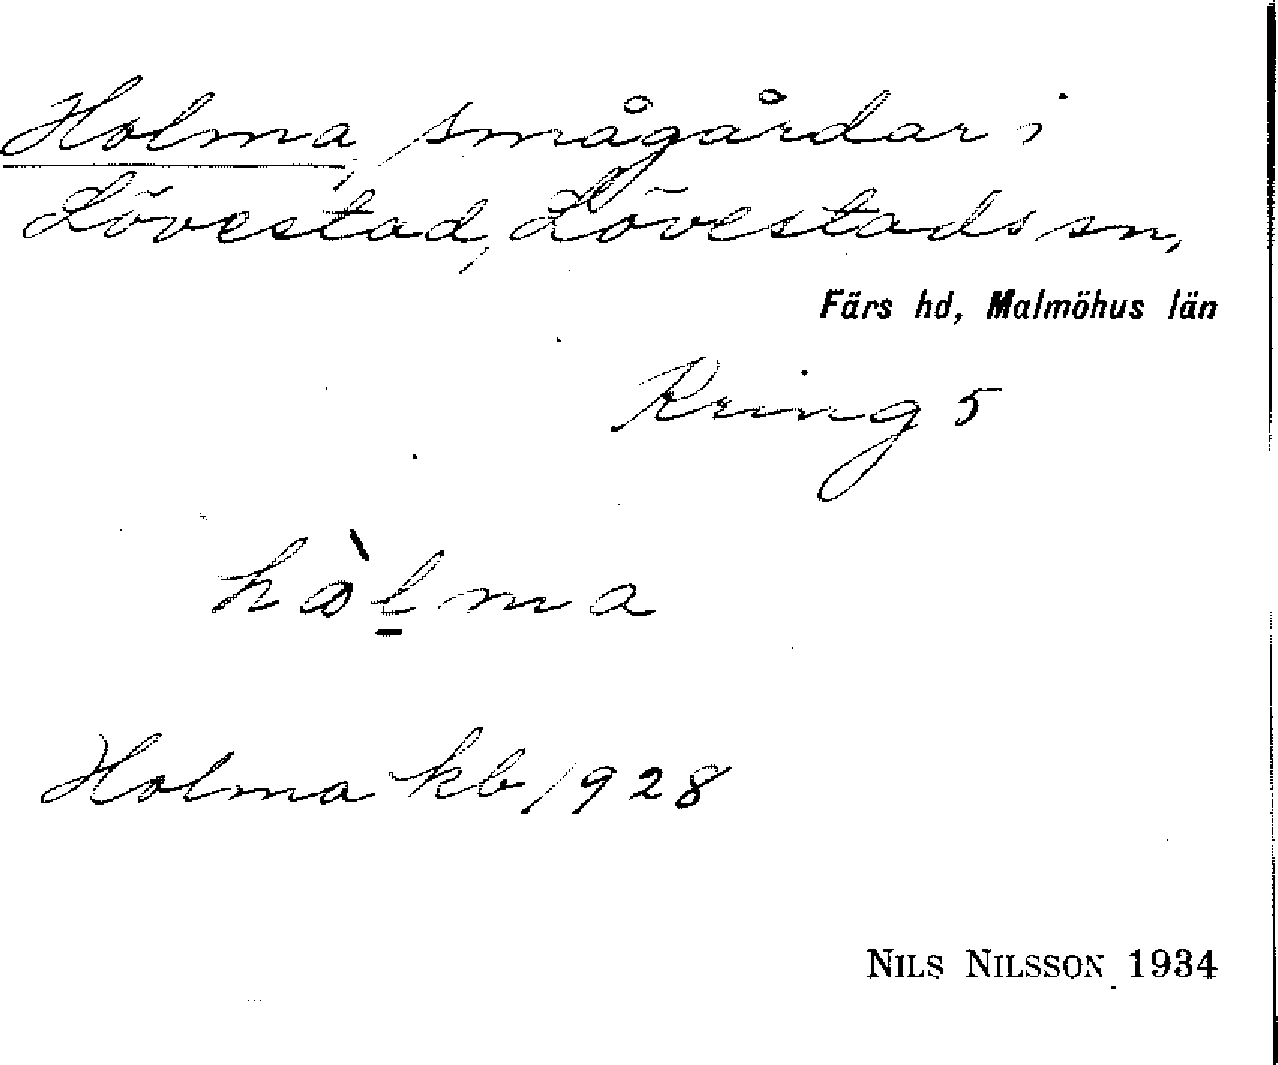 Holma, smågårdar i
Lövestad, Lövestads sn,
Färs hd, Malmöhus län
Kring 5
hòl̠ma
Holma kb 1928
NILS NILSSON 1934